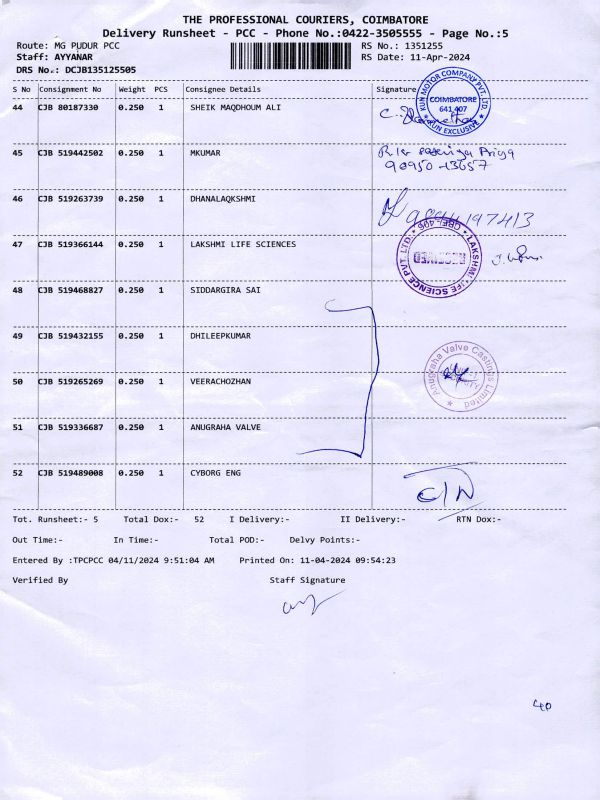 THE PROFESSIONAL COURIERS, COIMBATORE
Delivery Runsheet - PCC - Phone No.:0422-3505555 - Page No.:5
Route: MG PUDUR PCC Barcode Details RS No.: 1351255
Staff: AYYANAR RS Date: 11-Apr-2024
DRS No.: DCJB135125505
S No Consignment No Weight PCS Consignee Details Signature
44 CJB 80187330 0.250 1 SHEIK MAQDHOUM ALI
KUN MOTOR COMPANY PVT. LTD.
COIMBATORE
641 407
KUN EXCLUSIVE
45 CJB 519442502 0.250 1 MKUMAR Priya
90950-13657
46 CJB 519263739 0.250 1 DHANALAQKSHMI 9894197413
47 CJB 519366144 0.250 1 LAKSHMI LIFE SCIENCES
LAKSHMI LIFE SCIENCE PVT. LTD.
RECEIVED
48 CJB 519468827 0.250 1 SIDDARGIRA SAI
49 CJB 519432155 0.250 1 DHILEEPKUMAR
50 CJB 519265269 0.250 1 VEERACHOZHAN
Anugraha Valve Castings Limited
51 CJB 519336687 0.250 1 ANUGRAHA VALVE
52 CJB 519489008 0.250 1 CYBORG ENG C/N
Tot. Runsheet:- 5 Total Dox:- 52 I Delivery:- II Delivery:- RTN Dox:-
Out Time:- In Time:- Total POD:- Delvy Points:-
Entered By :TPCPCC 04/11/2024 9:51:04 AM Printed On: 11-04-2024 09:54:23
Verified By Staff Signature
40